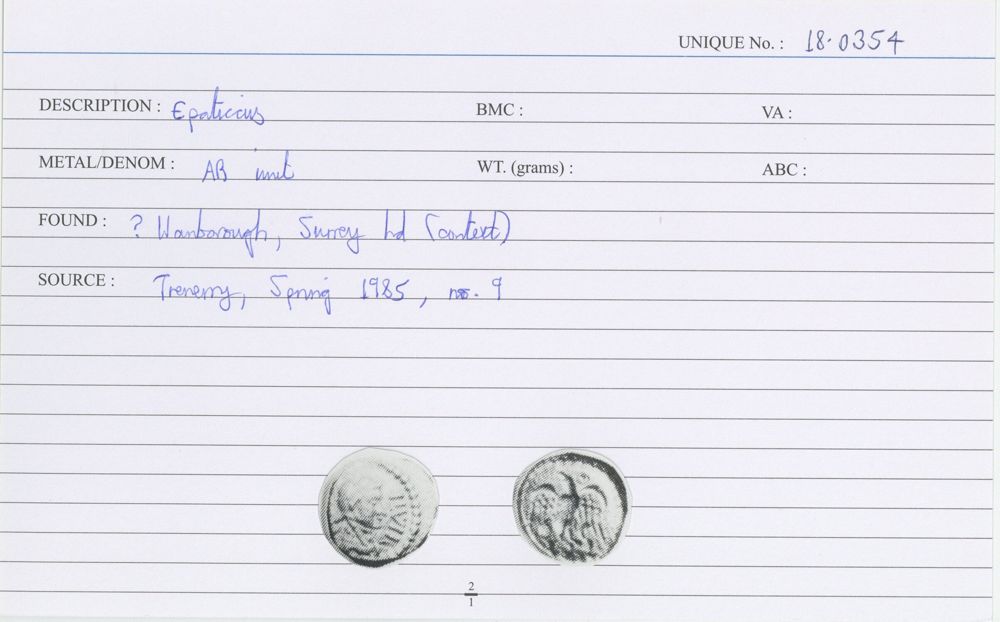 UNIQUE No. : 18.0354
DESCRIPTION : Epaticcus BMC : VA :
METAL/DENOM : AR unit WT. (grams) : ABC :
FOUND : ? Wanborough, Surrey hd (context)
SOURCE : Trenerry, Spring 1985, no. 9
2
1